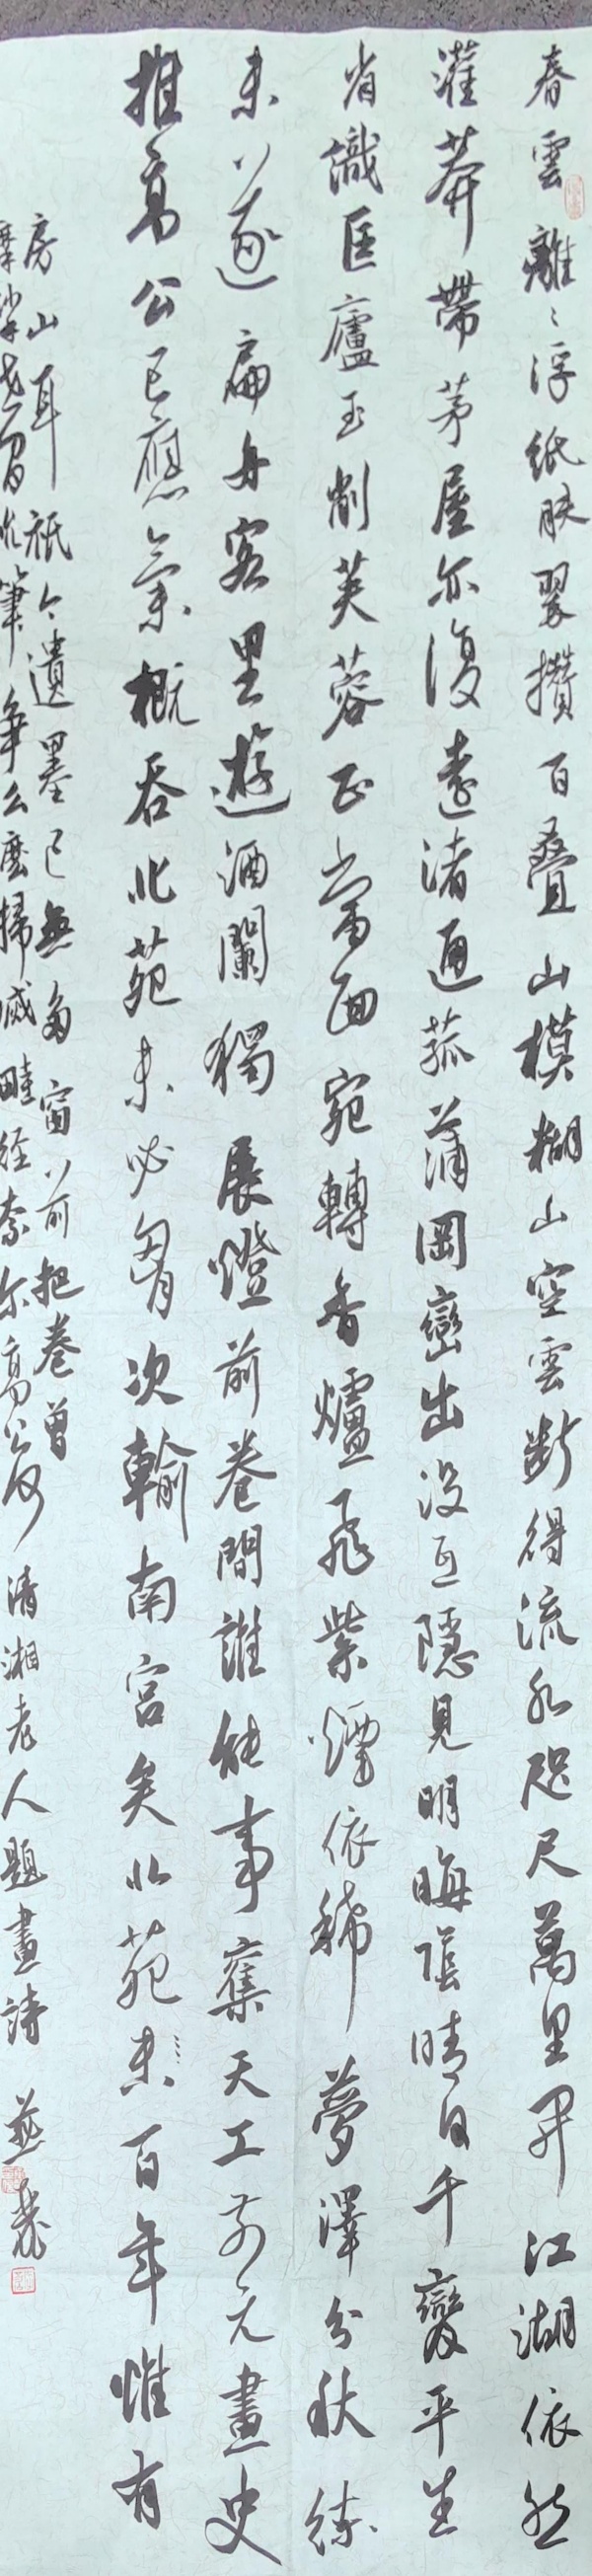 春雲離〻浮紙膚翠攢百疊山模糊山空雲斷得流水咫尺萬里開江湖依然
灌莽帶茅屋亦復遠渚通菰蒲岡巒出沒互隱見明晦陰晴日千變平生
省識匡廬玉削芙蓉正當面宛轉香爐飛紫煙依稀夢澤分秋練
未遂扁舟客里遊酒闌獨展燈前卷問誰能事奪天工前元畫史
推高公已應氣概吞北苑未必胸次輸南宮矣北苑未百年惟有
房山耳祇今遺墨已無多窗前把卷曾
摩挲老眉水筆爭么麼掃滅畦徑奈尔高公何 清湘老人題畫詩